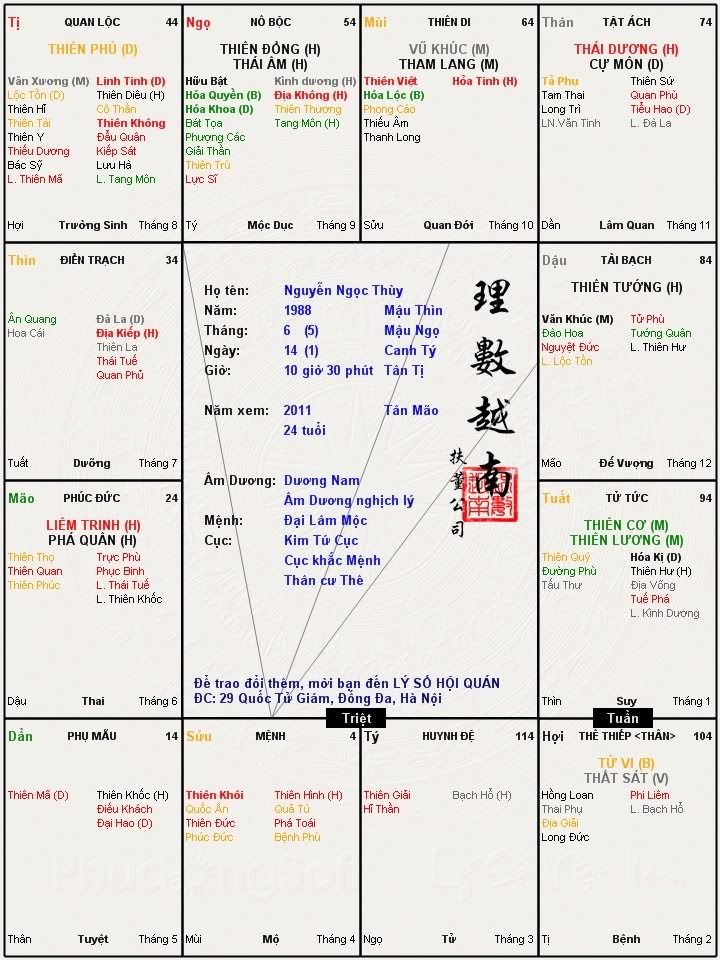 Tị QUAN LỘC 44
THIÊN PHỦ (D)
Văn Xương (M) Linh Tinh (D)
Lộc Tồn (D) Thiên Diêu (H)
Thiên Hỉ Cô Thần
Thiên Tài Thiên Không
Thiên Y Đẩu Quân
Thiếu Dương Kiếp Sát
Bác Sỹ Lưu Hà
L. Thiên Mã L. Tang Môn
Hợi Trường Sinh Tháng 8
Ngọ NÔ BỘC 54
THIÊN ĐỒNG (H)
THÁI ÂM (H)
Hữu Bật Kình dương (H)
Hóa Quyền (B) Địa Không (H)
Hóa Khoa (D) Thiên Thương
Bát Tọa Tang Môn (H)
Phượng Các
Giải Thần
Thiên Trù
Lực Sĩ
Tý Mộc Dục Tháng 9
Mùi THIÊN DI 64
VŨ KHÚC (M)
THAM LANG (M)
Thiên Việt Hỏa Tinh (H)
Hóa Lộc (B)
Phong Cáo
Thiếu Âm
Thanh Long
Sửu Quan Đới Tháng 10
Thân TẬT ÁCH 74
THÁI DƯƠNG (H)
CỰ MÔN (D)
Tả Phu Thiên Sứ
Tam Thai Quan Phù
Long Trì Tiểu Hao (D)
LN.Văn Tinh L. Đà La
Dần Lâm Quan Tháng 11
Thìn ĐIỀN TRẠCH 34
Ân Quang Đà La (D)
Hoa Cái Địa Kiếp (H)
Thiên La
Thái Tuế
Quan Phủ
Tuất Dưỡng Tháng 7
Họ tên: Nguyễn Ngọc Thùy
Năm: 1988 Mậu Thìn
Tháng: 6 (5) Mậu Ngọ
Ngày: 14 (1) Canh Tý
Giờ: 10 giờ 30 phút Tân Tị
Năm xem: 2011 Tân Mão
24 tuổi
Âm Dương: Dương Nam
Âm Dương nghịch lý
Mệnh: Đại Lâm Mộc
Cục: Kim Tứ Cục
Cục khắc Mệnh
Thân cư Thê
理數越南
扶董公司
Để trao đổi thêm, mời bạn đến LÝ SỐ HỘI QUÁN
ĐC: 29 Quốc Tử Giám, Đống Đa, Hà Nội
Dậu TÀI BẠCH 84
THIÊN TƯỚNG (H)
Văn Khúc (M) Tử Phù
Đào Hoa Tướng Quân
Nguyệt Đức L. Thiên Hư
L. Lộc Tồn
Mão Đế Vượng Tháng 12
Mão PHÚC ĐỨC 24
LIÊM TRINH (H)
PHÁ QUÂN (H)
Thiên Thọ Trực Phù
Thiên Quan Phục Binh
Thiên Phúc L. Thái Tuế
L. Thiên Khốc
Dậu Thai Tháng 6
Tuất TỬ TỨC 94
THIÊN CƠ (M)
THIÊN LƯƠNG (M)
Thiên Quý Hóa Kị (D)
Đường Phù Thiên Hư (H)
Tấu Thư Địa Võng
Tuế Phá
L. Kình Dương
Thìn Suy Tháng 1
Triệt
Tuần
Dần PHỤ MẪU 14
Thiên Mã (D) Thiên Khốc (H)
Điếu Khách
Đại Hao (D)
Thân Tuyệt Tháng 5
Sửu MỆNH 4
Thiên Khôi Thiên Hình (H)
Quốc Ấn Quả Tú
Thiên Đức Phá Toái
Phúc Đức Bệnh Phù
Mùi Mộ Tháng 4
Tý HUYNH ĐỆ 114
Thiên Giải Bạch Hổ (H)
Hỉ Thần
Ngọ Tử Tháng 3
Hợi THÊ THIẾP <THÂN> 104
TỬ VI (B)
THẤT SÁT (V)
Hồng Loan Phi Liêm
Thai Phụ L. Bạch Hổ
Địa Giải
Long Đức
Tị Bệnh Tháng 2